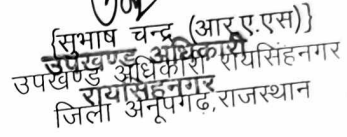 {सुभाष चन्द्र (आर.ए.एस)}
उपखण्ड अधिकारी
उपखण्ड अधिकारी रायसिंहनगर
रायसिंहनगर
जिला अनूपगढ़,राजस्थान